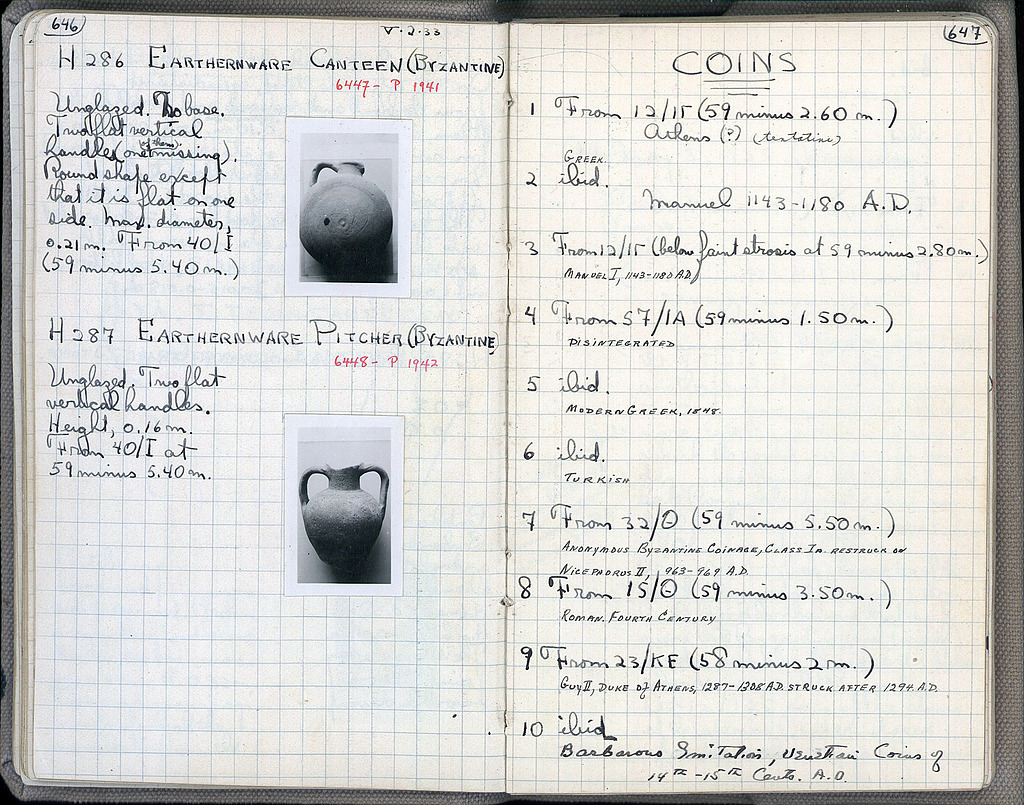 646
V·2·33
H 286 EARTHERNWARE CANTEEN (BYZANTINE)
6447- P 1941
Unglazed. No base.
Two flat vertical
handles (one of them missing).
Round shape except
that it is flat on one
side. Max. diameter,
0.21 m. From 40/I
(59 minus 5.40 m.)
H 287 EARTHERNWARE PITCHER (BYZANTINE)
6448- P 1942
Unglazed. Two flat
vertical handles.
Height, 0.16 m.
From 40/I at
59 minus 5.40 m.
647
COINS
1 From 12/IΓ (59 minus 2.60 m.)
Athens (?) (tentative)
GREEK.
2 ibid.
Manuel 1143-1180 A.D.
3 From 12/IΓ (below faint strosis at 59 minus 2.80 m.)
MANUEL I, 1143-1180 A.D.
4 From 57/IA (59 minus 1.50 m.)
DISINTEGRATED
5 ibid.
MODERN GREEK, 1848.
6 ibid.
TURKISH
7 From 32/Θ (59 minus 5.50 m.)
ANONYMOUS BYZANTINE COINAGE, CLASS Ia. RESTRUCK ON
NICEPHORUS II, 963-969 A.D.
8 From 15/Θ (59 minus 3.50 m.)
ROMAN. FOURTH CENTURY
9 From 23/KE (58 minus 2 m.)
GUY II, DUKE OF ATHENS, 1287-1308 A.D. STRUCK AFTER 1294 A.D.
10 ibid
Barbarous Imitation, Venetian Coins of
14TH-15TH Cents. A.D.